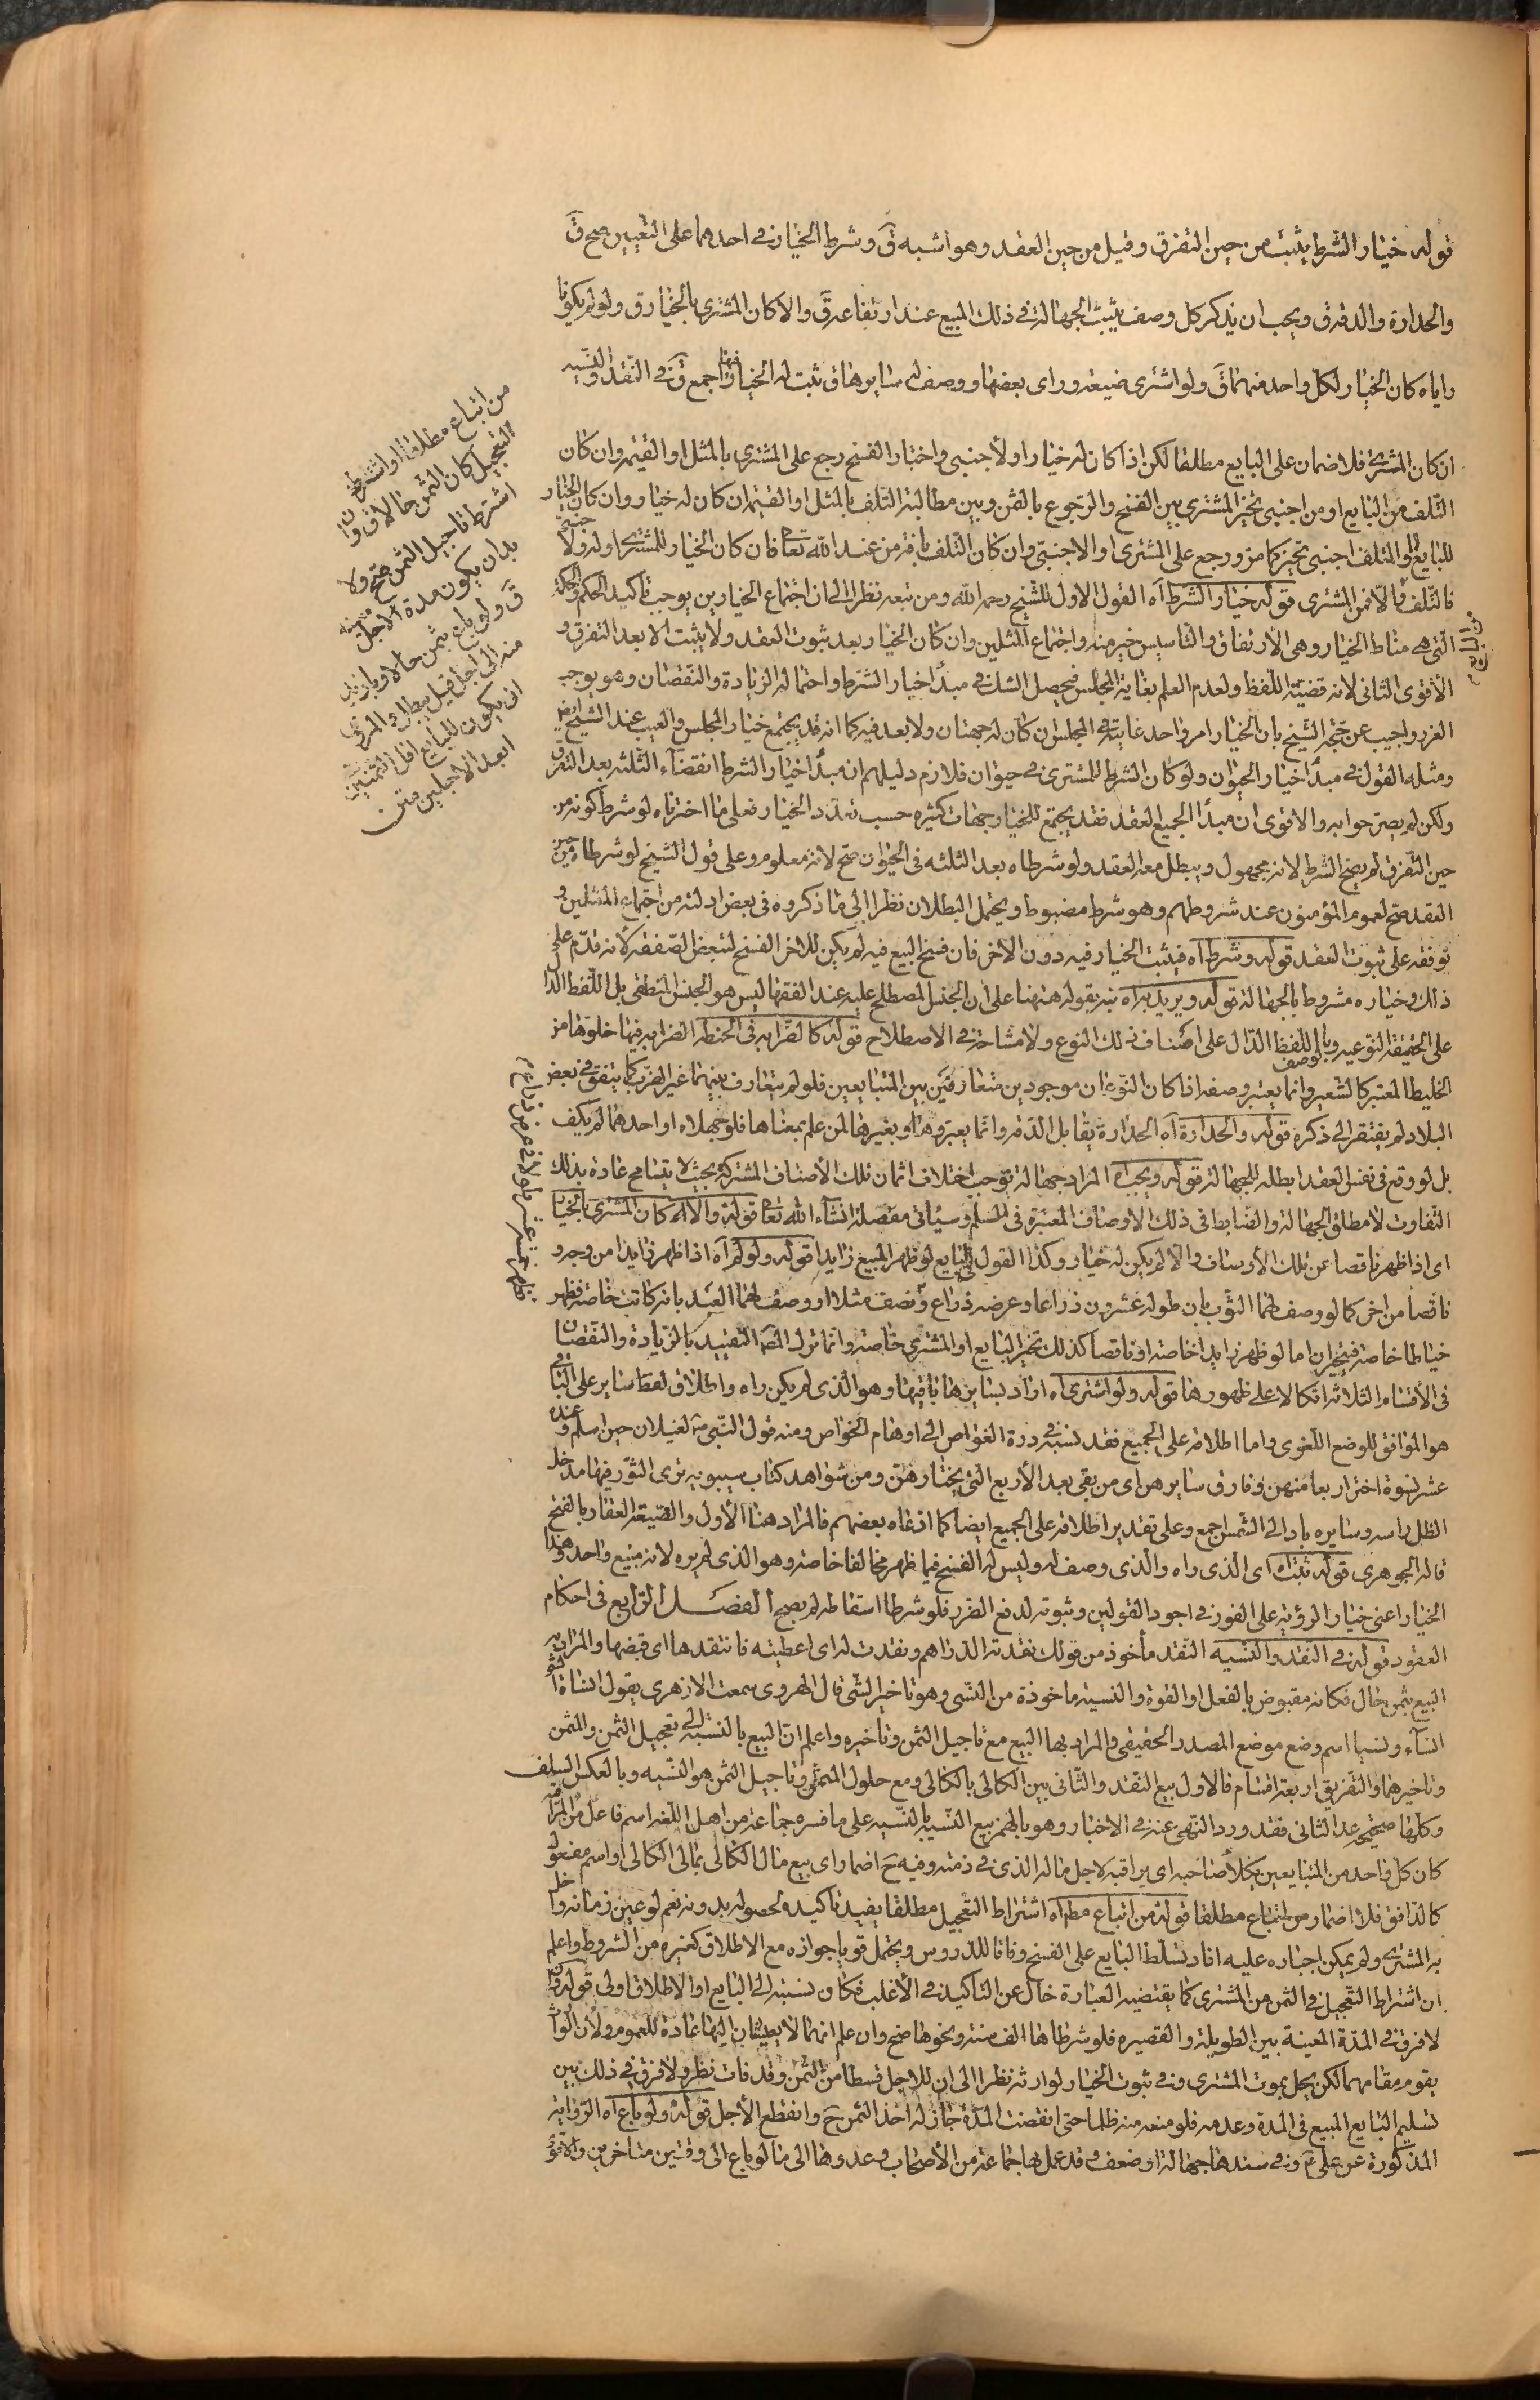 قوله خيار الشرط يثبت من حين التفرق وقيل من حين العقد وهو اشبه قَ وشرط الخيار في احدهما على التعيين صح قَ
والحدارة والدقة ق ويجب ان يذكر كل وصف يثبت الجهالة في ذلك المبيع عند ارتفاعه قَ والا كان المشترى بالخيار ق ولو لم يكونا
راياه كان الخيار لكل واحد منهما قَ ولو اشترى ضيعة وراى بعضها ووصف له سايرها ق ثبت له الخيار فيها اجمع قَ في النقد والنسيه
من ابتاع مطلقا او اشترط
التعجيل كان الثمن حالا ق وان
اشترط تاجيل الثمن صح ولا
بد ان يكون مدة الاجل معينه
قَ ولو باع بثمن حالا وبازيد
منه الى اجل قيل يبطل والمروى
ان يكون للبايع اقل الثمنين في
ابعد الاجلين متن
ان كان المشترى فلا ضمان على البايع مطلقا لكن اذا كان له خيار او لأجنبى واختار الفسخ رجع على المشترى بالمثل او القيمة وان كان
التلف من البايع او من اجنبى تخير المشترى بين الفسخ والرجوع بالثمن وبين مطالبة التلف بالمثل او القيمة ان كان له خيار وان كان الخيار
للبايع او المتلف اجنبى تخير كما مر ورجع على المشترى او الاجنبى وان كان التلف بافة من عند الله تعا فان كان الخيار للمشترى او له ولاجنبى
فالتلف والا فمن المشترى قوله خيار الشرط آه القول الاول للشيخ رحمه الله ومن تبعه نظرا الى ان اجتماع الخيارين يوجب تأكيد الحكم والحكمة
التى هى مناط الخيار وهى الارتفاق والتاسيس خير منه واجتماع المثلين وان كان الخيار بعد ثبوت العقد ولا يثبت الا بعد التفرق و
الأقوى الثانى لانه قضية اللفظ ولعدم العلم بغاية المجلس فيحصل الشك في مبدأ خيار الشرط واحتماله الزيادة والنقصان وهو يوجب
الغرر واجيب عن حجة الشيخ بان الخيار امر واحد غايته في المجلس ان كان له جهتان ولا بعد فيه كما انه قد يجتمع خيار المجلس والعيب عند الشيخ ايض
ومثله القول في مبدأ خيار الحيوان ولو كان الشرط للمشترى في حيوان فلازم دليلهم ان مبدأ خيار الشرط انقضآء الثلثه بعد التفرق
ولكن لم يصرحوا به والاقوى ان مبدأ الجميع العقد فقد يجتمع للخيار جهات كثيره حسب تعدد الخيار فعلى ما اخترناه لو شرط كونه من
حين التفرق لم يصح الشرط لانه مجهول ويبطل معه العقد ولو شرطاه بعد الثلثه فى الحيوان صح لانه معلوم وعلى قول الشيخ لو شرطاه من حين
العقد صح لعموم المؤمنون عند شروطهم وهو شرط مضبوط ويحتمل البطلان نظرا الى ما ذكروه فى بعض ادلته من اجتماع المثلين و
توقفه على ثبوت العقد قوله وشرط آه فيثبت الخيار فيه دون الاخر فان فسخ البيع فيه لم يكن للاخر الفسخ لتبعض الصفقه لانه قدم على
ذلك وخياره مشروط بالجهالة قوله ويريد به آه نبه بقوله ههنا على ان الجنس المصطلح عليه عند الفقها ليس هو الجنس المنطقى بل اللفظ الدال
على الحقيقة النوعيه وبالوصف اللفظ الدال على اصناف ذلك النوع ولا مشاحة في الاصطلاح قوله كالصرابه فى الحنطه الصرابه فيها خلوها من
الخليط المعتبر كالشعير وانما يعتبر وصفه اذا كان النوعان موجودين متعارفين بين المتبايعين فلو لم يتعارف بينهما غير الصرب كما يتفق في بعض
البلاد لم يفتقر الى ذكره قوله والحدارة آه الحدارة يقابل الدقه وانما يعتبر وهذا وبغيرها لمن علم بمعناها فلو جهلاه او احدهما لم يكف
بل لو وقع فى نفس العقد ابطله للجهالة قوله ويجب آه المراد جهالة توجب اختلاف اثمان تلك الأصناف المشتركة بحيث لا يتسامح عادة بذلك
التفاوت لا مطلق الجهالة والضابط فى ذلك الاوصاف المعتبرة فى السلم وسيأتى مفصلة انشآء الله تعا قوله والا آه كان المشترى بالخيار
اى اذا ظهر ناقصا عن تلك الأوصاف والا لم يكن له خيار وكذا القول فى البايع لو ظهر المبيع زايدا قوله ولو لم آه اذا ظهر زايدا من وجه و
ناقصا من اخر كما لو وصف لهما الثوب بان طوله عشرون ذراعا وعرضه ذراع ونصف مثلا او وصف لهما العبد بانه كاتب خاصة فظهر
خياطا خاصة فيتخيران اما لو ظهر زايدا خاصة او ناقصا كذلك تخير البايع او المشترى خاصة وانما ترك المصَ التقييد بالزيادة والنقصان
فى الأقسام الثلاثه اتكالا على ظهورها قوله ولو اشترى آه اراد بسايرها باقيها وهو الذى لم يكن راه واطلاق لفظ ساير على الباقى
هو الموافق للوضع اللغوى واما اطلاقه على الجميع فقد نسبه في درة الغواص الى اوهام الخواص ومنه قول النبى ص لغيلان حين اسلم وعنده
عشر نسوة اختر اربعا منهن وفارق سايرهن اى من بقى بعد الأربع التى يختارهن ومن شواهد كتاب سيبويه ترى الثور فيها مدخل
الظل راسه وسايره باد الى الشمس اجمع وعلى تقدير اطلاقه على الجميع ايضا كما ادعاه بعضهم فالمراد هنا الأول والضيعة العقار بالفتح
قاله الجوهرى قوله ثبت آه اى الذى راه والذى وصف له وليس له الفسخ فيما ظهر مخالفا خاصة وهو الذى لم يره لانه مبيع واحد وهذا
الخيار اعنى خيار الرؤية على الفور في اجود القولين وثبوته لدفع الضرر فلو شرطا اسقاطه لم يصح الفصل الرابع فى احكام
العقود قوله في النقد والنسيه النقد مأخوذ من قولك نقدته الدراهم ونقدت له اى اعطيته فانتقدها اى قبضها والمراد به
البيع بثمن حال فكانه مقبوض بالفعل او القوة والنسيئة ماخوذة من النسى وهو تاخير الشى قال الهروى سمعت الازهرى يقول انسأة الشى
انساء ونسيا اسم وضع موضع المصدر الحقيقى والمراد بها البيع مع تاجيل الثمن وتاخيره واعلم ان البيع بالنسبة الى تعجيل الثمن والمثمن
وتاخيرهما والتفريق اربعة اقسام فالاول بيع النقد والثانى بيع الكالى بالكالى ومع حلول المثمن وتاجيل الثمن هو النسيه وبالعكس السلف
وكلها صحيح عدا الثانى فقد ورد النهى عنه في الاخبار وهو بالهمز بيع النسيه بالنسيه على ما فسره جماعة من اهل اللغه اسم فاعل من المراقبة
كان كل واحد من المتبايعين يكلأ صاحبه اى يراقبه لاجل ماله الذى في ذمته وفيه حَ اضمار اى بيع مال الكالى بمال الكالى او اسم مفعول
كالدافق فلا اضمار من ابتاع مطلقا قوله من ابتاع مطَ آه اشتراط التعجيل مطلقا يفيد تاكيده لحصوله بدونه نعم لو عين زمانه واخل
به المشترى ولم يمكن اجباره عليه افاد تسلط البايع على الفسخ وفاقا للدروس ويحتمل قويا جوازه مع الاطلاق كغيره من الشروط واعلم
ان اشتراط التعجيل في الثمن من المشترى كما يقتضيه العبارة خال عن التاكيد في الأغلب فكان نسبته الى البايع او الاطلاق اولى قوله وان
لا فرق في المدة المعينة بين الطويلة والقصيره فلو شرطاها الف سنة ونحوها صح وان علم انهما لا يعيشان اليها عادة للعموم ولأن الوارث
يقوم مقامهما لكن يحل بموت المشترى وفى ثبوت الخيار لوارثه نظرا الى ان للاجل قسطا من الثمن وقد فات نظر ولا فرق في ذلك بين
تسليم البايع المبيع فى المدة وعدمه فلو منعه منه ظلما حتى انقضت المدة جاز له اخذ الثمن حَ وانقطع الأجل قوله ولو باع آه الرواية
المذكورة عن على عَ وفى سندها جهالة او ضعف وقد عمل بها جماعة من الأصحاب وعدوها الى ما لو باع الى وقتين متاخرين والاقوى